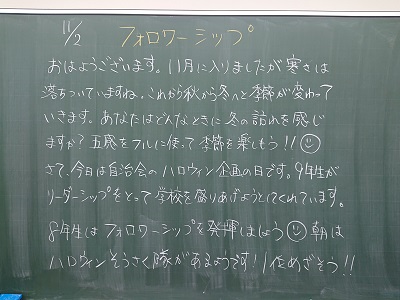 11/2 フォロワーシップ
おはようございます。11月に入りましたが寒さは
落ちついていますね。これから秋から冬へと季節が変わって
いきます。あなたはどんなときに冬の訪れを感じ
ますか？五感をフルに使って季節を楽しもう!!
さて、今日は自治会のハロウィン企画の日です。9年生が
リーダーシップをとって学校を盛りあげようとしてくれています。
8年生はフォロワーシップを発揮しましょう 朝は
ハロウィンそうさく隊があるようです!1位めざそう!!